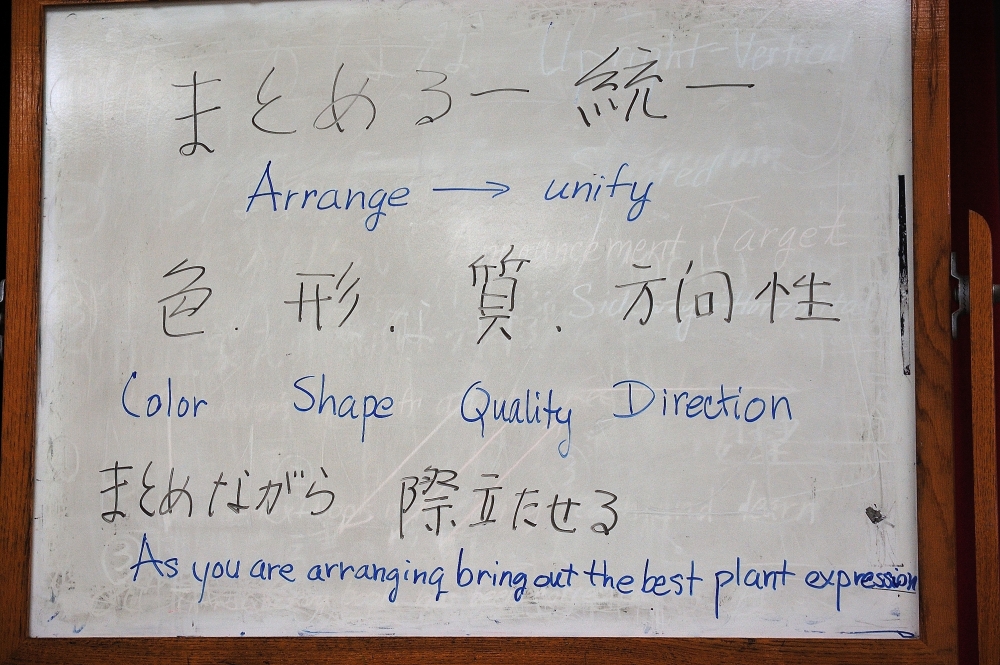 まとめるー統一
Arrange → unify
色．形．質．方向性
Color Shape Quality Direction
まとめながら 際立たせる
As you are arranging bring out the best plant expression
Upright-Vertical
Target